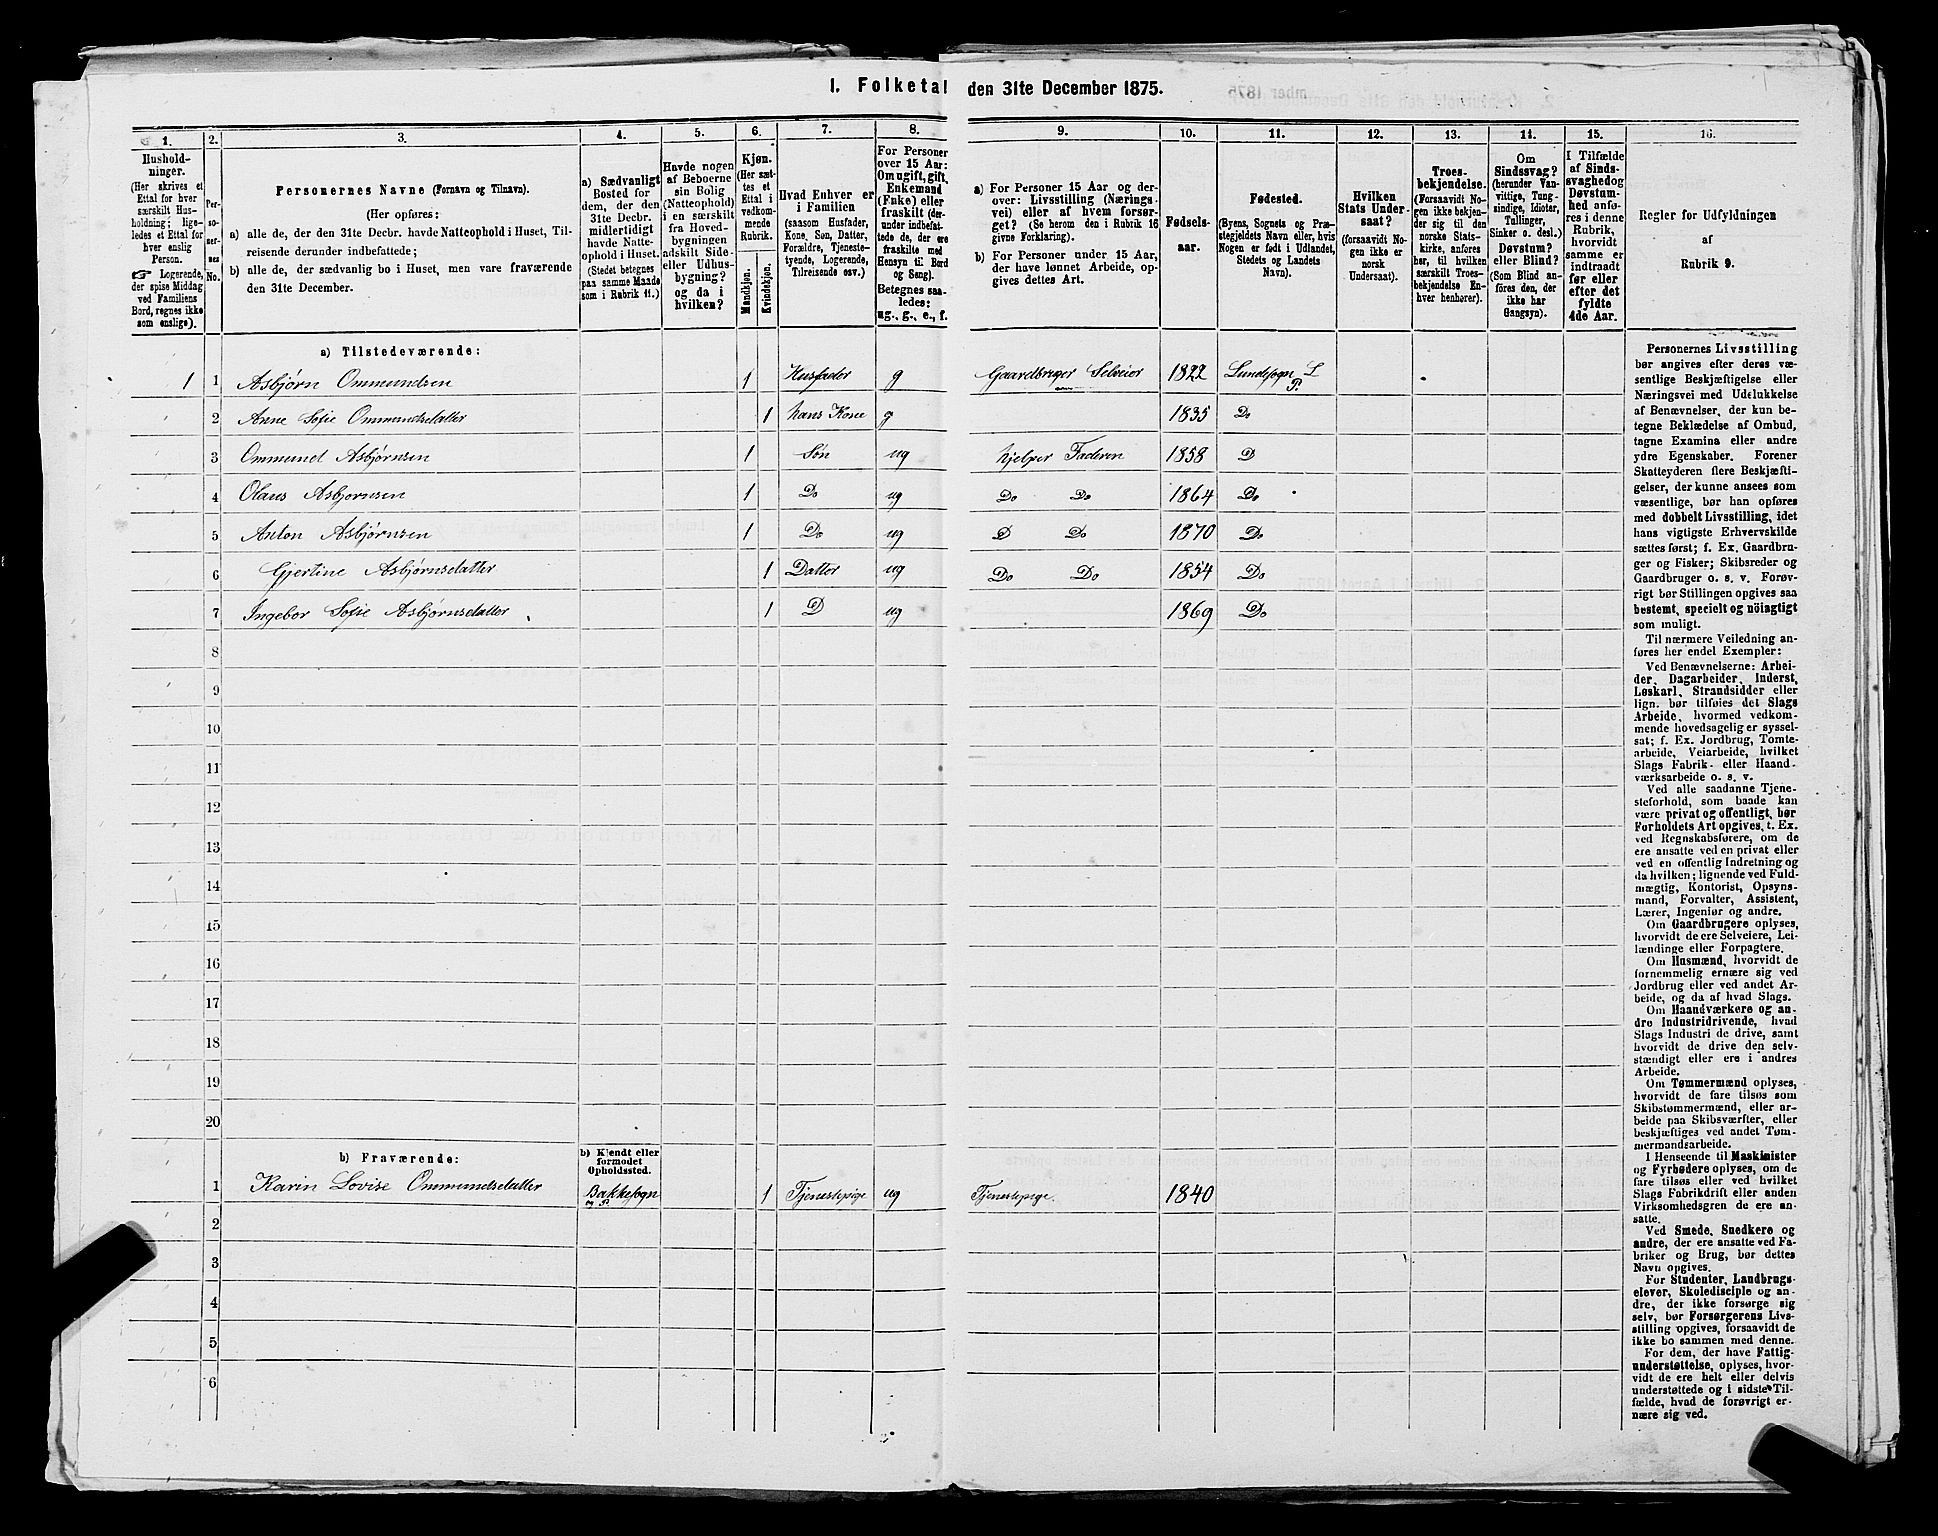 I. Folketal den 31te December 1875.
1. 2. 3. 4. 5. 6. 7. 8. 9. 10. 11. 12. 13. 14. 15. 16.
Hushold-
ninger.
(Her skrives et
Ettal for hver
særskilt Hus-
holdning; lige-
ledes et Ettal for
hver enslig
Person.
☞ Logerende,
der spise Middag
ved Familiens
Bord, regnes ikke
som enslige).
Per-
so-
ner-
nes
No.
Personernes Navne (Fornavn og Tilnavn).
(Her opføres:
a) alle de, der den 31te Decbr. havde Natteophold i Huset, Til-
reisende derunder indbefattede;
b) alle de, der sædvanlig bo i Huset, men vare fraværende
den 31te December.
a) Sædvanligt
Bosted for
dem, der den
31te Decbr.
midlertidigt
havde Natte-
ophold i Huset.
(Stedet betegnes
paa samme Maade
som i Rubrik 11.)
Havde nogen
af Beboerne
sin Bolig
(Natteophold)
i en særskilt
fra Hoved-
bygningen
adskilt Side-
eller Udhus-
bygning?
og da i
hvilken?
Kjøn.
(Her sæt-
tes et
Ettal i
vedkom-
mende
Rubrik.
Mandkjøn.
Kvindekjøn.
Hvad Enhver er
i Familien
(saasom Husfader,
Kone, Søn, Datter,
Forældre, Tjeneste-
tyende, Logerende,
Tilreisende osv.)
For Personer
over 15 Aar:
Om ugift, gift,
Enkemand
(Enke) eller
fraskilt (der-
under indbefat-
tede de, der ere
fraskilte med
Hensyn til Bord
og Seng).
Betegnes saa-
ledes:
ug., g., e., f.
a) For Personer 15 Aar og der-
over: Livsstilling (Nærings-
vei) eller af hvem forsør-
get? (Se herom den i Rubrik 16
givne Forklaring).
b) For Personer under 15 Aar,
der have lønnet Arbeide, op-
gives dettes Art.
Fødsels-
aar.
Fødested.
(Byens, Sognets og Præ-
stegjeldets Navn eller, hvis
Nogen er født i Udlandet,
Stedets og Landets
Navn).
Hvilken
Stats Under-
saat?
(forsaavidt No-
gen ikke er
norsk
Undersaat).
Troes-
bekjendelse.
(Forsaavidt No-
gen ikke bekjen-
der sig til den
norske Stats-
kirke, anføres
her, til hvilken
særskilt Troes-
bekjendelse En-
hver henhører).
Om
Sindssvag?
(herunder Van-
vittige, Tung-
sindige, Idioter,
Tullinger,
Sinker o. desl.)
Døvstum?
eller Blind?
(Som Blind an-
føres den, der
ikke har
Gangsyn).
I Tilfælde
af Sinds-
svaghed og
Døvstum-
hed anfø-
res i denne
Rubrik,
hvorvidt
samme er
indtraadt
før eller
efter det
fyldte
4de Aar.
Regler for Udfyldningen
af
Rubrik 9.
a) Tilstedeværende:
1 1 Asbjørn Ommundsen 1 Husfader g Gaardbruger Selveier 1822 Lundesogn L P.
2 Anne Sofie Ommundsdatter 1 hans Kone g 1835 Do
3 Ommund Asbjørnsen 1 Søn ug hjelper Faderen 1858 D
4 Olaus Asbjørnsen 1 Do ug Do Do 1864 Do
5 Anton Asbjørnsen 1 Do ug D Do 1870 Do
6 Gjertine Asbjørnsdatter 1 Datter ug Do Do 1854 Do
7 Ingebor Sofie Asbjørnsdatter 1 D ug 1869 Do
8
9
10
11
12
13
14
15
16
17
18
19
20
b) Fraværende:
b) Kjendt eller
formodet
Opholdssted.
1 Karin Lovise Ommundsdatter Bakkesogn og P. 1 Tjenestepige ug Tjenestepige. 1840
2
3
4
5
6
Personernes Livsstilling
bør angives efter deres væ-
sentlige Beskjæftigelse eller
Næringsvei med Udelukkelse
af Benævnelser, der kun be-
tegne Beklædelse af Ombud,
tagne Examina eller andre
ydre Egenskaber. Forener
Skatteyderen flere Beskjæfti-
gelser, der kunne ansees som
væsentlige, bør han opføres
med dobbelt Livsstilling, idet
hans vigtigste Erhvervskilde
sættes først; f. Ex. Gaardbru-
ger og Fisker; Skibsreder og
Gaardbruger o. s. v. Forøv-
rigt bør Stillingen opgives saa
bestemt, specielt og nöiagtigt
som muligt.
Til nærmere Veiledning an-
føres her endel Exempler:
Ved Benævnelserne: Arbei-
der, Dagarbeider, Inderst,
Løskarl, Strandsidder eller
lign. bør tilføies det Slags
Arbeide, hvormed vedkom-
mende hovedsagelig er syssel-
sat; f. Ex. Jordbrug, Tomte-
arbeide, Veiarbeide, hvilket
Slags Fabrik- eller Haand-
værksarbeide o. s. v.
Ved alle saadanne Tjene-
steforhold, som baade kan
være privat og offentligt, bør
Forholdets Art opgives, t. Ex.
ved Regnskabsførere, om de
ere ansatte ved en privat eller
ved en offentlig Indretning og
da hvilken; lignende ved Fuld-
mægtig, Kontorist, Opsyns-
mand, Forvalter, Assistent,
Lærer, Ingeniør og andre.
Om Gaardbrugere oplyses,
hvorvidt de ere Selveiere, Lei-
lændinge eller Forpagtere.
Om Husmænd, hvorvidt de
fornemmelig ernære sig ved
Jordbrug eller ved andet Ar-
beide, og da af hvad Slags.
Om Haandværkere og an-
dre Industridrivende, hvad
Slags Industri de drive, samt
hvorvidt de drive den selv-
stændigt eller ere i andres
Arbeide.
Om Tømmermænd oplyses,
hvorvidt de fare tilsøs som
Skibstømmermænd, eller ar-
beide paa Skibsværfter, eller
beskjæftiges ved andet Tøm-
mermandsarbeide.
I Henseende til Maskinister
og Fyrbødere oplyses, om de
fare tilsøs eller ved hvilket
Slags Fabrikdrift eller anden
Virksomhedsgren de ere an-
satte.
Ved Smede, Snedkere og
andre, der ere ansatte ved Fa-
briker og Brug, bør dettes
Navn opgives.
For Studenter, Landbrugs-
elever, Skoledisciple og an-
dre, der ikke forsørge sig
selv, bør Forsørgerens Livs-
stilling opgives, forsaavidt de
ikke bo sammen med denne.
For dem, der have Fattig-
understøttelse, oplyses, hvor-
vidt de ere helt eller delvis
understøttede og i sidste Til-
fælde, hvad de forøvrigt er-
nære sig ved.